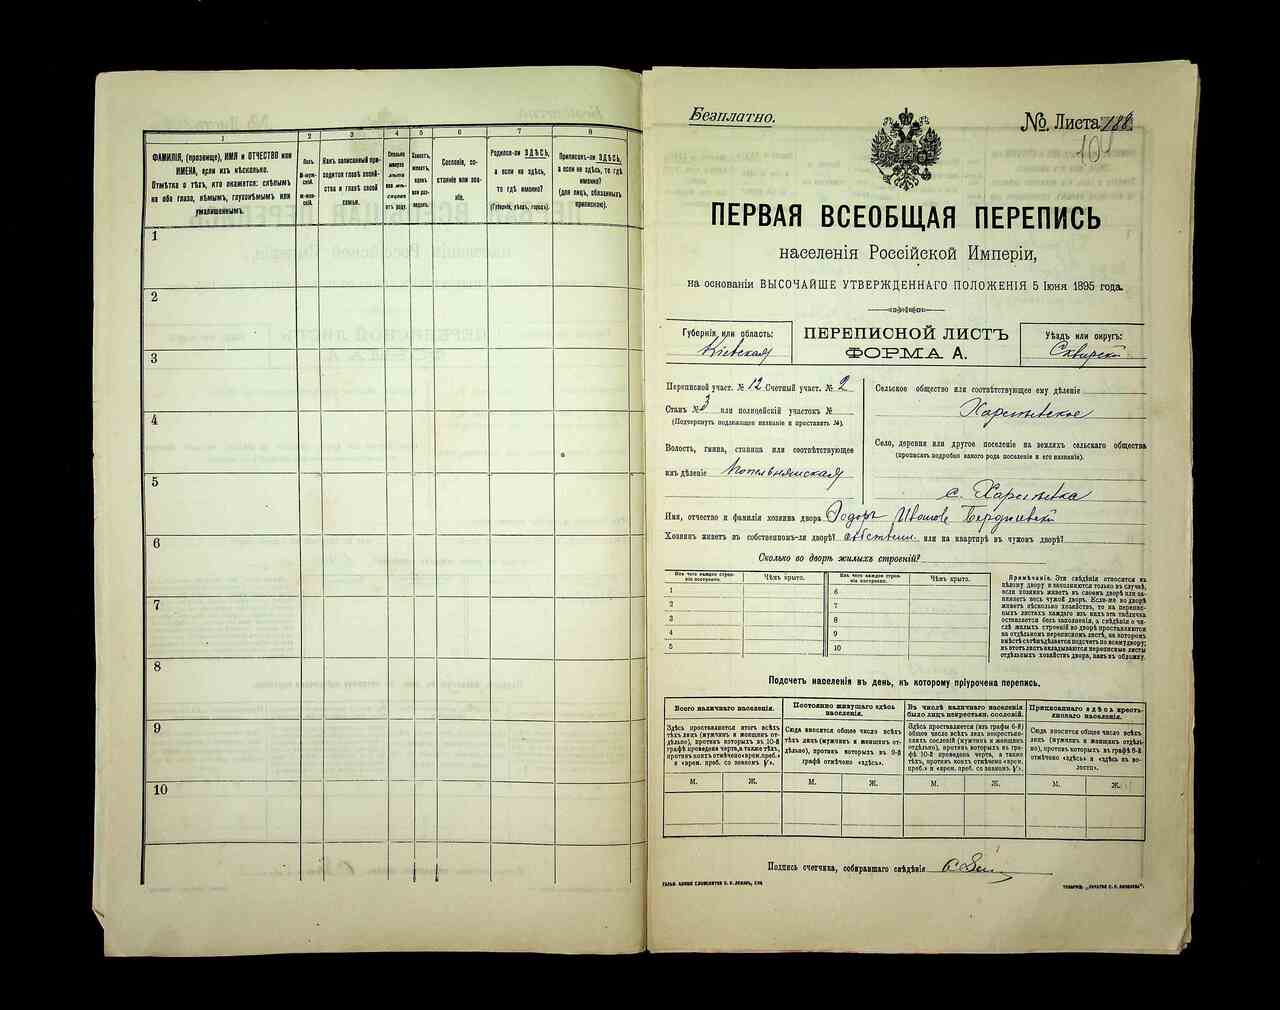 1 2 3 4 5 6 7 8
ФАМИЛІЯ, (прозвище), ИМЯ и ОТЧЕСТВО или
ИМЕНА, если ихъ нѣсколько.
Отмѣтка о тѣхъ, кто окажется: слѣпымъ
на оба глаза, нѣмымъ, глухонѣмымъ или
умалишеннымъ.
Полъ.
М-муж-
ской.
Ж-жен-
скій.
Какъ записанный при-
ходится главѣ хозяй-
ства и главѣ своей
семьи.
Сколько
минуло
лѣтъ
или мѣ-
сяцевъ
отъ роду.
Холостъ,
женатъ,
вдовъ
или раз-
веденъ.
Сословіе, со-
стояніе или зва-
ніе.
Родился-ли ЗДѢСЬ,
а если не здѣсь,
то гдѣ именно?
(Губернія, уѣздъ, городъ).
Приписанъ-ли ЗДѢСЬ,
а если не здѣсь, то гдѣ
именно?
(для лицъ, обязанныхъ
припискою).
1
2
3
4
5
6
7
8
9
10
Безплатно.
№ Листа 188
ПЕРВАЯ ВСЕОБЩАЯ ПЕРЕПИСЬ
населенія Россійской Имперіи,
на основаніи ВЫСОЧАЙШЕ УТВЕРЖДЕННАГО ПОЛОЖЕНІЯ 5 Іюня 1895 года.
Губернія или область:
Кіевская
ПЕРЕПИСНОЙ ЛИСТЪ
ФОРМА А.
Уѣздъ или округъ:
Сквирскій
Переписной участ. № 12 Счетный участ. № 2
Станъ № 3 или полицейскій участокъ №
(Подчеркнуть подлежащее названіе и проставить №).
Волость, гмина, станица или соотвѣтствующее
имъ дѣленіе Попельнянская
Сельское общество или соотвѣтствующее ему дѣленіе
Харлеевское
Село, деревня или другое поселеніе на земляхъ сельскаго общества
(прописать подробно какого рода поселеніе и его названіе).
с. Харлеевка
Имя, отчество и фамилія хозяина двора Ѳедоръ Ивановъ
Хозяинъ живетъ въ собственномъ-ли дворѣ? или на квартирѣ въ чужомъ дворѣ?
Сколько во дворѣ жилыхъ строеній?
Изъ чего каждое строе-
ніе построено.
Чѣмъ крыто.
Изъ чего каждое строе-
ніе построено.
Чѣмъ крыто.
1 6
2 7
3 8
4 9
5 10
Примѣчаніе. Эти свѣдѣнія относятся къ
цѣлому двору и заполняются только въ случаѣ,
если хозяинъ живетъ въ своемъ дворѣ или за-
нимаетъ весь чужой дворъ. Если-же во дворѣ
живетъ нѣсколько хозяйствъ, то на перепис-
ныхъ листахъ каждаго изъ нихъ эта табличка
оставляется безъ заполненія, а свѣдѣнія о чи-
слѣ жилыхъ строеній во дворѣ проставляются
на отдѣльномъ переписномъ листѣ, на которомъ
вмѣстѣ съ тѣмъ дѣлается подсчетъ по всему двору;
въ этотъ листъ вкладываются переписные листы
отдѣльныхъ хозяйствъ двора, какъ въ обложку.
Подсчетъ населенія въ день, къ которому пріурочена перепись.
Всего наличнаго населенія.
Постоянно живущаго здѣсь
населенія.
Въ числѣ наличнаго населенія
было лицъ некрестьян. сословій.
Приписаннаго здѣсь кресть-
янскаго населенія.
Здѣсь проставляется итогъ всѣхъ
тѣхъ лиц (мужчинъ и женщинъ от-
дѣльно), противъ которыхъ въ 10-й
графѣ проведена черта, а также тѣхъ,
противъ коихъ отмѣчено «врем. преб.»
и «врем. преб. со знакомъ V».
Сюда вносится общее число всѣхъ
тѣхъ лицъ (мужчинъ и женщинъ от-
дѣльно), противъ которыхъ въ 9-й
графѣ отмѣчено «здѣсь».
Здѣсь проставляется (изъ графы 6-й)
общее число всѣхъ лицъ некрестьян-
скихъ сословій (мужчинъ и женщинъ
отдѣльно), противъ которыхъ въ гра-
фѣ 10-й проведена черта, а также
тѣхъ, противъ коихъ отмѣчено «врем.
преб.» и «врем. преб. со знакомъ V».
Сюда вносится общее число всѣхъ
тѣхъ лицъ (мужчинъ и женщинъ отдѣль-
но), противъ которыхъ въ графѣ 8-й
отмѣчено «здѣсь» и «здѣсь въ во-
лости».
М. Ж. М. Ж. М. Ж. М. Ж.
Подпись счетчика, собиравшаго свѣдѣнія